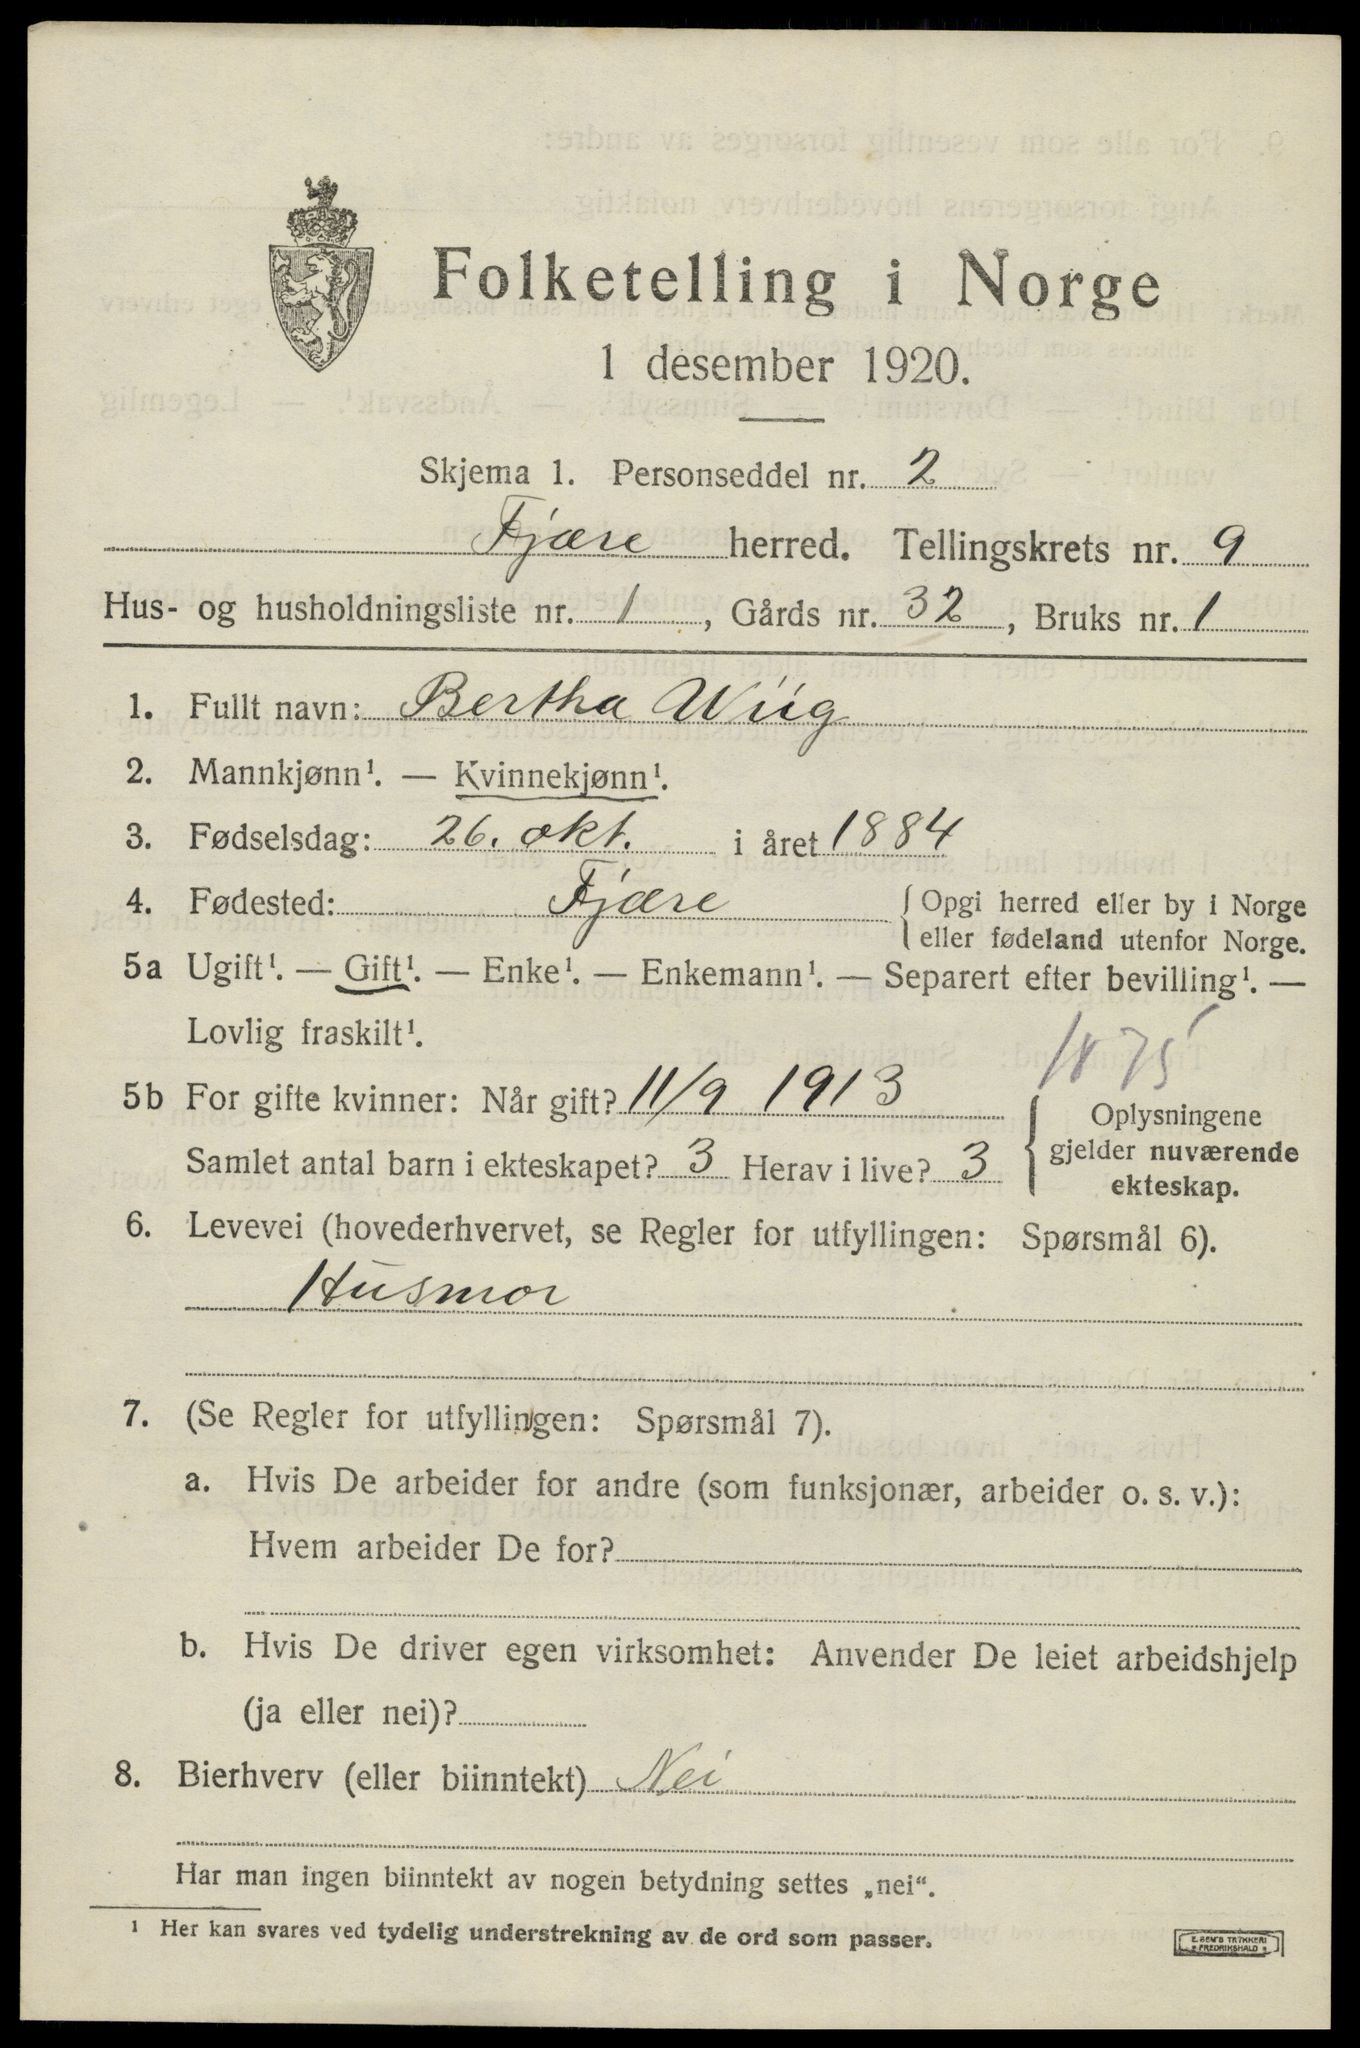 Folketelling i Norge
1 desember 1920.
Skjema 1. Personseddel nr. 2
Fjære herred. Tellingskrets nr. 9
Hus- og husholdningsliste nr. 1, Gårds nr. 32, Bruks nr. 1
1. Fullt navn: Bertha Wiig
2. Mannkjønn¹. — Kvinnekjønn¹.
3. Fødselsdag: 26. okt. i året 1884
4. Fødested: Fjære { Opgi herred eller by i Norge
eller fødeland utenfor Norge.
5a Ugift¹. — Gift¹. — Enke¹. — Enkemann¹. — Separert efter bevilling¹. —
Lovlig fraskilt¹.
1875
5b For gifte kvinner: Når gift? 11/9 1913
Samlet antal barn i ekteskapet? 3 Herav i live? 3
{ Oplysningene
gjelder nuværende
ekteskap.
6. Levevei (hovederhvervet, se Regler for utfyllingen: Spørsmål 6).
Husmor
7. (Se Regler for utfyllingen: Spørsmål 7).
a. Hvis De arbeider for andre (som funksjonær, arbeider o. s. v.):
Hvem arbeider De for?
b. Hvis De driver egen virksomhet: Anvender De leiet arbeidshjelp
(ja eller nei)?
8. Bierhverv (eller biinntekt) Nei
Har man ingen biinntekt av nogen betydning settes „nei“.
¹ Her kan svares ved tydelig understrekning av de ord som passer.
E. SEM'S TRYKKERI
FREDRIKSHALD